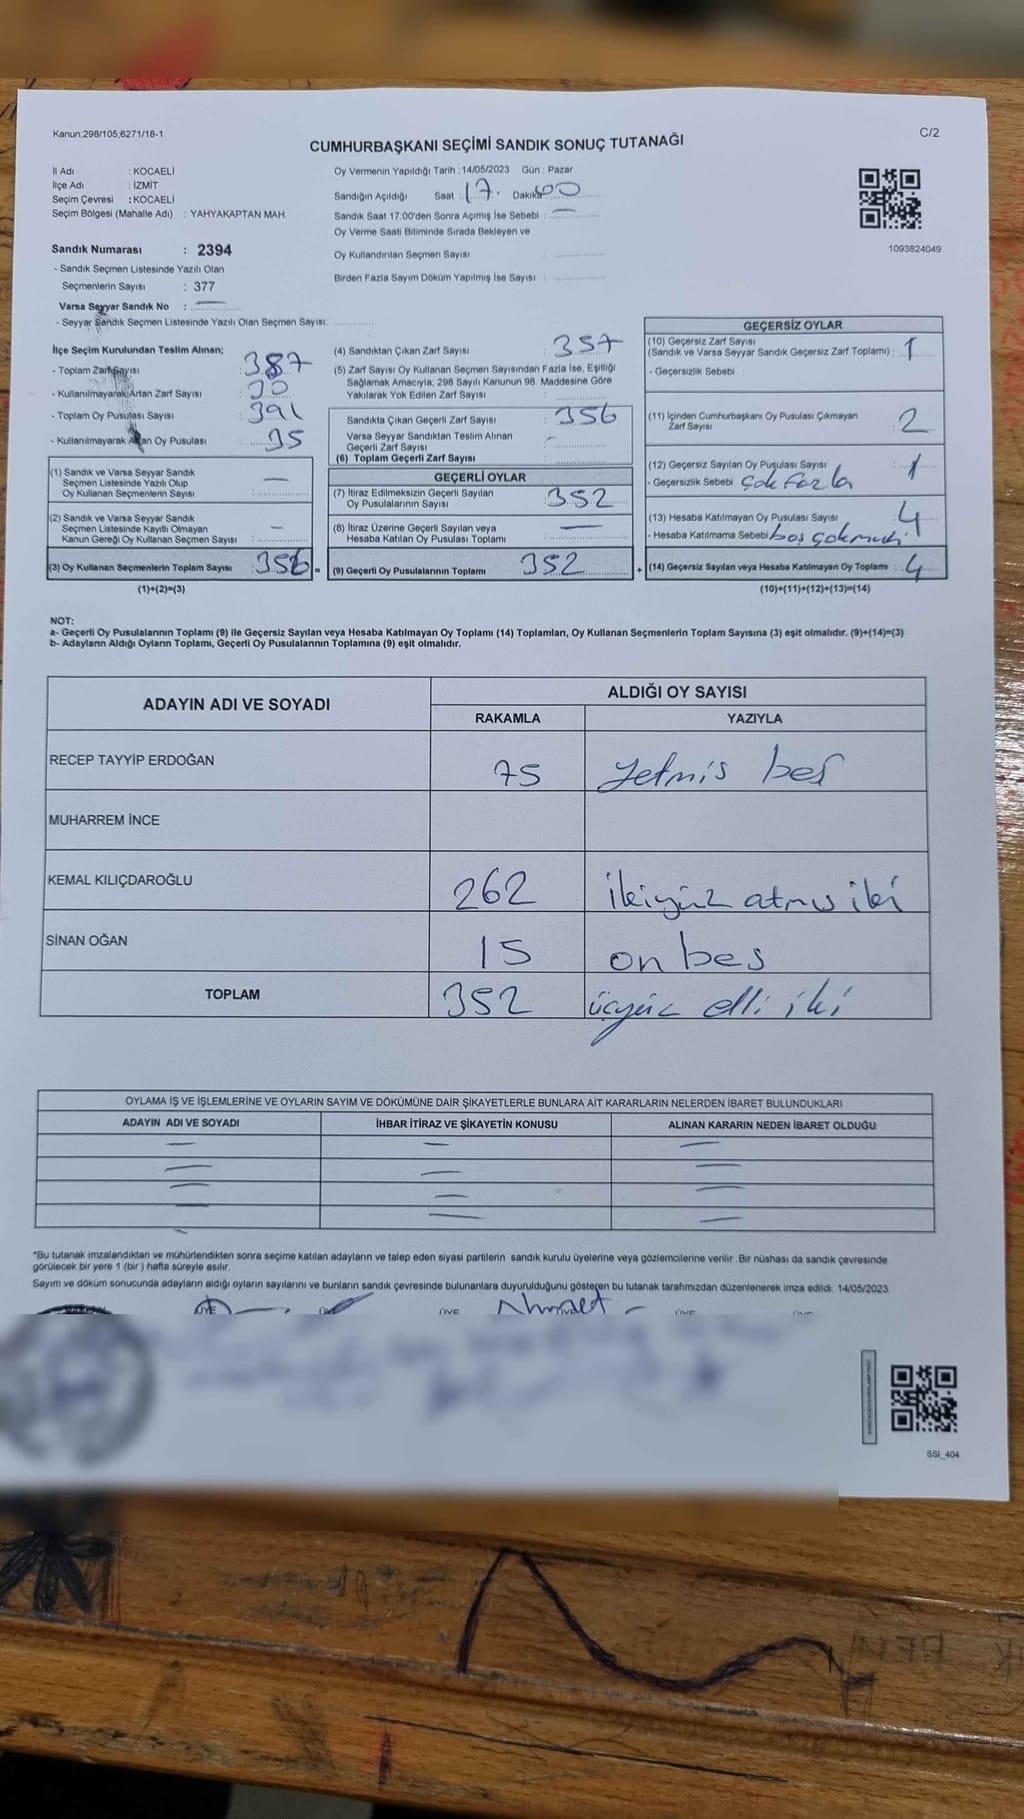 Kanun;298/105;6271/18-1
C/2
CUMHURBAŞKANI SEÇİMİ SANDIK SONUÇ TUTANAĞI
İl Adı : KOCAELİ
İlçe Adı : İZMİT
Seçim Çevresi : KOCAELİ
Seçim Bölgesi (Mahalle Adı) : YAHYAKAPTAN MAH.
Sandık Numarası : 2394
- Sandık Seçmen Listesinde Yazılı Olan
Seçmenlerin Sayısı : 377
Varsa Seyyar Sandık No : —
- Seyyar Sandık Seçmen Listesinde Yazılı Olan Seçmen Sayısı:
Oy Vermenin Yapıldığı Tarih : 14/05/2023 Gün : Pazar
Sandığın Açıldığı Saat : 17. Dakika 00
Sandık Saat 17:00'den Sonra Açımış İse Sebebi : —
Oy Verme Saati Bitiminde Sırada Bekleyen ve
Oy Kullandırılan Seçmen Sayısı :
Birden Fazla Sayım Döküm Yapılmış İse Sayısı :
1093824049
İlçe Seçim Kurulundan Teslim Alınan;
- Toplam Zarf Sayısı : 387
- Kullanılmayarak Artan Zarf Sayısı : 30
- Toplam Oy Pusulası Sayısı : 391
- Kullanılmayarak Artan Oy Pusulası : 35
(1) Sandık ve Varsa Seyyar Sandık
Seçmen Listesinde Yazılı Olup
Oy Kullanan Seçmenlerin Sayısı : —
(2) Sandık ve Varsa Seyyar Sandık
Seçmen Listesinde Kayıtlı Olmayan
Kanun Gereği Oy Kullanan Seçmen Sayısı : —
(3) Oy Kullanan Seçmenlerin Toplam Sayısı 356 =
(1)+(2)=(3)
(4) Sandıktan Çıkan Zarf Sayısı : 357
(5) Zarf Sayısı Oy Kullanan Seçmen Sayısından Fazla İse, Eşitliği
Sağlamak Amacıyla, 298 Sayılı Kanunun 98. Maddesine Göre
Yakılarak Yok Edilen Zarf Sayısı :
Sandıkta Çıkan Geçerli Zarf Sayısı : 356
Varsa Seyyar Sandıktan Teslim Alınan
Geçerli Zarf Sayısı : -
(6) Toplam Geçerli Zarf Sayısı :
GEÇERLİ OYLAR
(7) İtiraz Edilmeksizin Geçerli Sayılan
Oy Pusulalarının Sayısı : 352
(8) İtiraz Üzerine Geçerli Sayılan veya
Hesaba Katılan Oy Pusulası Toplamı : —
(9) Geçerli Oy Pusulalarının Toplamı 352 +
GEÇERSİZ OYLAR
(10) Geçersiz Zarf Sayısı
(Sandık ve Varsa Seyyar Sandık Geçersiz Zarf Toplamı) : 1
- Geçersizlik Sebebi :
(11) İçinden Cumhurbaşkanı Oy Pusulası Çıkmayan
Zarf Sayısı : 2
(12) Geçersiz Sayılan Oy Pusulası Sayısı : 1
- Geçersizlik Sebebi Çok fazla
(13) Hesaba Katılmayan Oy Pusulası Sayısı : 4
- Hesaba Katılmama Sebebi boş
(14) Geçersiz Sayılan veya Hesaba Katılmayan Oy Toplamı : 4
(10)+(11)+(12)+(13)=(14)
NOT:
a- Geçerli Oy Pusulalarının Toplamı (9) ile Geçersiz Sayılan veya Hesaba Katılmayan Oy Toplamı (14) Toplamları, Oy Kullanan Seçmenlerin Toplam Sayısına (3) eşit olmalıdır. (9)+(14)=(3)
b- Adayların Aldığı Oyların Toplamı, Geçerli Oy Pusulalarının Toplamına (9) eşit olmalıdır.
ADAYIN ADI VE SOYADI
ALDIĞI OY SAYISI
RAKAMLA YAZIYLA
RECEP TAYYİP ERDOĞAN 75 yetmis beş
MUHARREM İNCE
KEMAL KILIÇDAROĞLU 262 ikiyüz atmış iki
SİNAN OĞAN 15 on bes
TOPLAM 352 üçyüz elli iki
OYLAMA İŞ VE İŞLEMLERİNE VE OYLARIN SAYIM VE DÖKÜMÜNE DAİR ŞİKAYETLERLE BUNLARA AİT KARARLARIN NELERDEN İBARET BULUNDUKLARI
ADAYIN ADI VE SOYADI İHBAR İTİRAZ VE ŞİKAYETİN KONUSU ALINAN KARARIN NEDEN İBARET OLDUĞU
*Bu tutanak imzalandıktan ve mühürlendikten sonra seçime katılan adayların ve talep eden siyasi partilerin sandık kurulu üyelerine veya gözlemcilerine verilir. Bir nüshası da sandık çevresinde
görülecek bir yere 1 (bir) hafta süreyle asılır.
Sayım ve döküm sonucunda adayların aldığı oyların sayılarını ve bunların sandık çevresinde bulunanlara duyurulduğunu gösteren bu tutanak tarafımızdan düzenlenerek imza edildi. 14/05/2023
ÜYE ÜYE ÜYE Ahmet ÜYE ÜYE
SSI_404